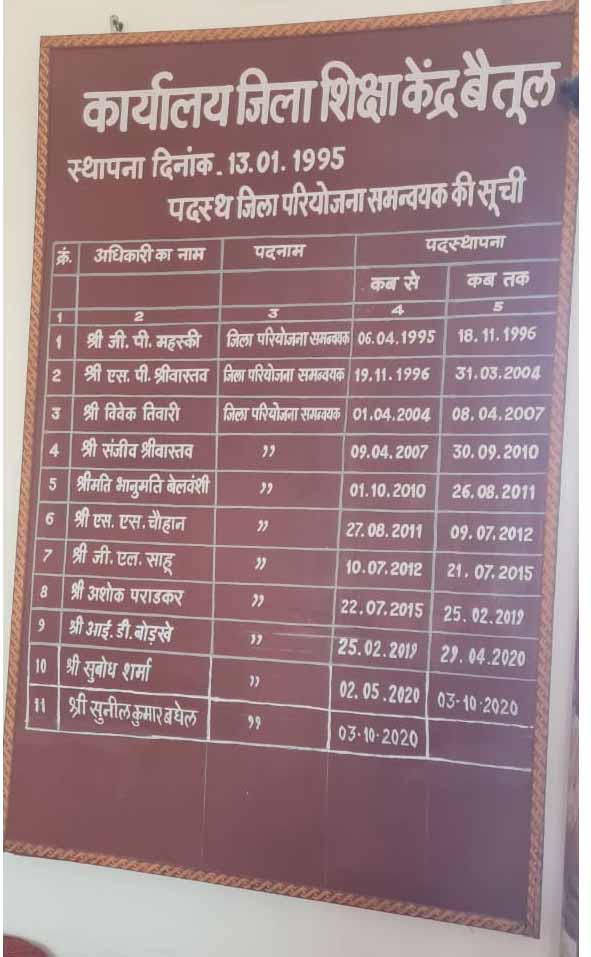 कार्यालय जिला शिक्षा केंद्र बैतूल
स्थापना दिनांक. 13.01.1995
पदस्थ जिला परियोजना समन्वयक की सूची
क्रं. अधिकारी का नाम पदनाम पदस्थापना
कब से कब तक
1 2 3 4 5
1 श्री जी. पी. महस्की जिला परियोजना समन्वयक 06.04.1995 18.11.1996
2 श्री एस. पी. श्रीवास्तव जिला परियोजना समन्वयक 19.11.1996 31.03.2004
3 श्री विवेक तिवारी जिला परियोजना समन्वयक 01.04.2004 08.04.2007
4 श्री संजीव श्रीवास्तव ,, 09.04.2007 30.09.2010
5 श्रीमति भानुमति बेलवंशी ,, 01.10.2010 26.08.2011
6 श्री एस. एस. चौहान ,, 27.08.2011 09.07.2012
7 श्री जी. एल. साहू ,, 10.07.2012 21.07.2015
8 श्री अशोक पराडकर ,, 22.07.2015 25.02.2019
9 श्री आई. डी. बोड़खे ,, 25.02.2019 29.04.2020
10 श्री सुबोध शर्मा ,, 02.05.2020 03-10-2020
11 श्री सुनील कुमार बघेल ,, 03-10-2020